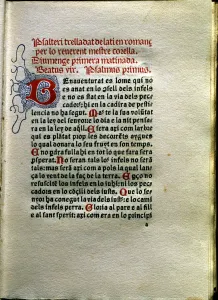 Psalteri trelladat de lati en romanç
per lo reverent mestre corella.
Diumenge primera matinada.
Beatus vir. Psalmus primus.
Benaventurat es lome qui no
es anat en lo consell dels infels
e no es stat en la via dels pec-
cadors: hi en la cadira de pesti-
lencia no ha segut. Mas ta voluntat sua
en la ley del senyor e lo dia e la nit pen-
ra en la ley de aquell. E sera axi com larbor
qui es plantat prop les decorrents aygues
lo qual donara lo seu fruyt en son temps.
E no ydra fulla hi tot lo que fara sera
prosperat. No seran tals los infels no sera
tals: mas seran axi com a pols la qual lança
lo vent de la faç de la terra. E per ço no
resuscitẽ los infels en lo juhi ni los pec-
cadors en lo cõçili dels justs. Car lo senyor
ha conegut la via dels justs: e lo cami
dels infels perra. Gloria al pare e al fill
e al sant sperit: axi com era en lo principi
a